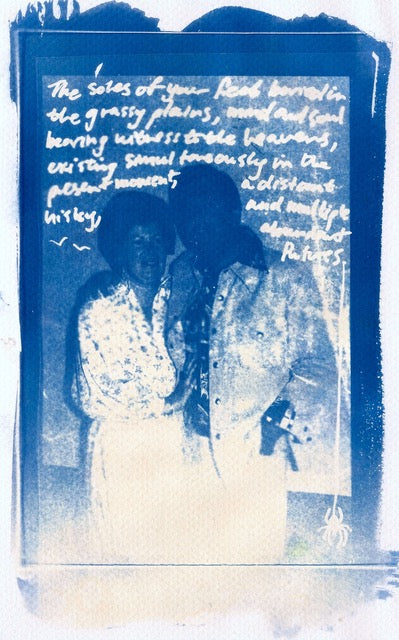 The soles of your feet buried in
the grassy plains, mind and soul
bearing witness to the heavens,
existing simultaneously in the
present moment, a distant
history, and multiple
abundant
futures